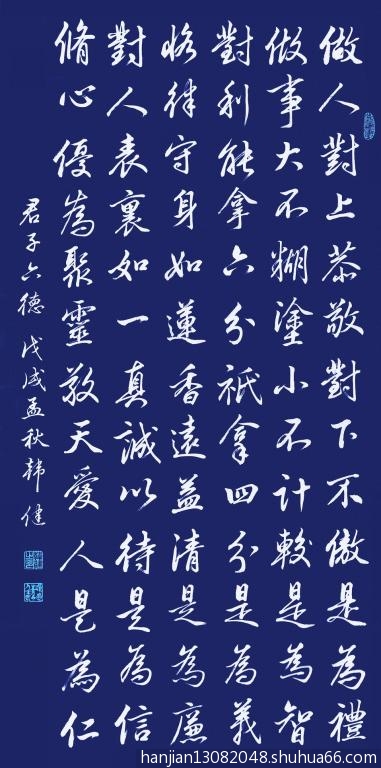 做人對上恭敬對下不傲是為禮
做事大不糊塗小不計較是為智
對利能拿六分祇拿四分是為義
恪律守身如蓮香遠益清是為廉
對人表裏如一真誠以待是為信
脩心優為聚靈敬天愛人是為仁
君子六德 戊戌孟秋韓健
hanjian13082048.shuhua66.com